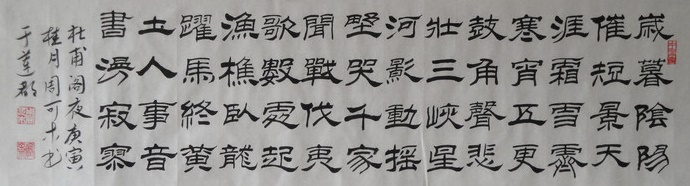 歲暮陰陽
催短景天
涯霜雪霽
寒宵五更
鼓角聲悲
壯三峽星
河影動搖
埜哭千家
聞戰伐夷
歌數處起
漁樵臥龍
躍馬終黄
土人事音
書漫寂寥
杜甫阁夜庚寅
桂月周可书
于蓮都